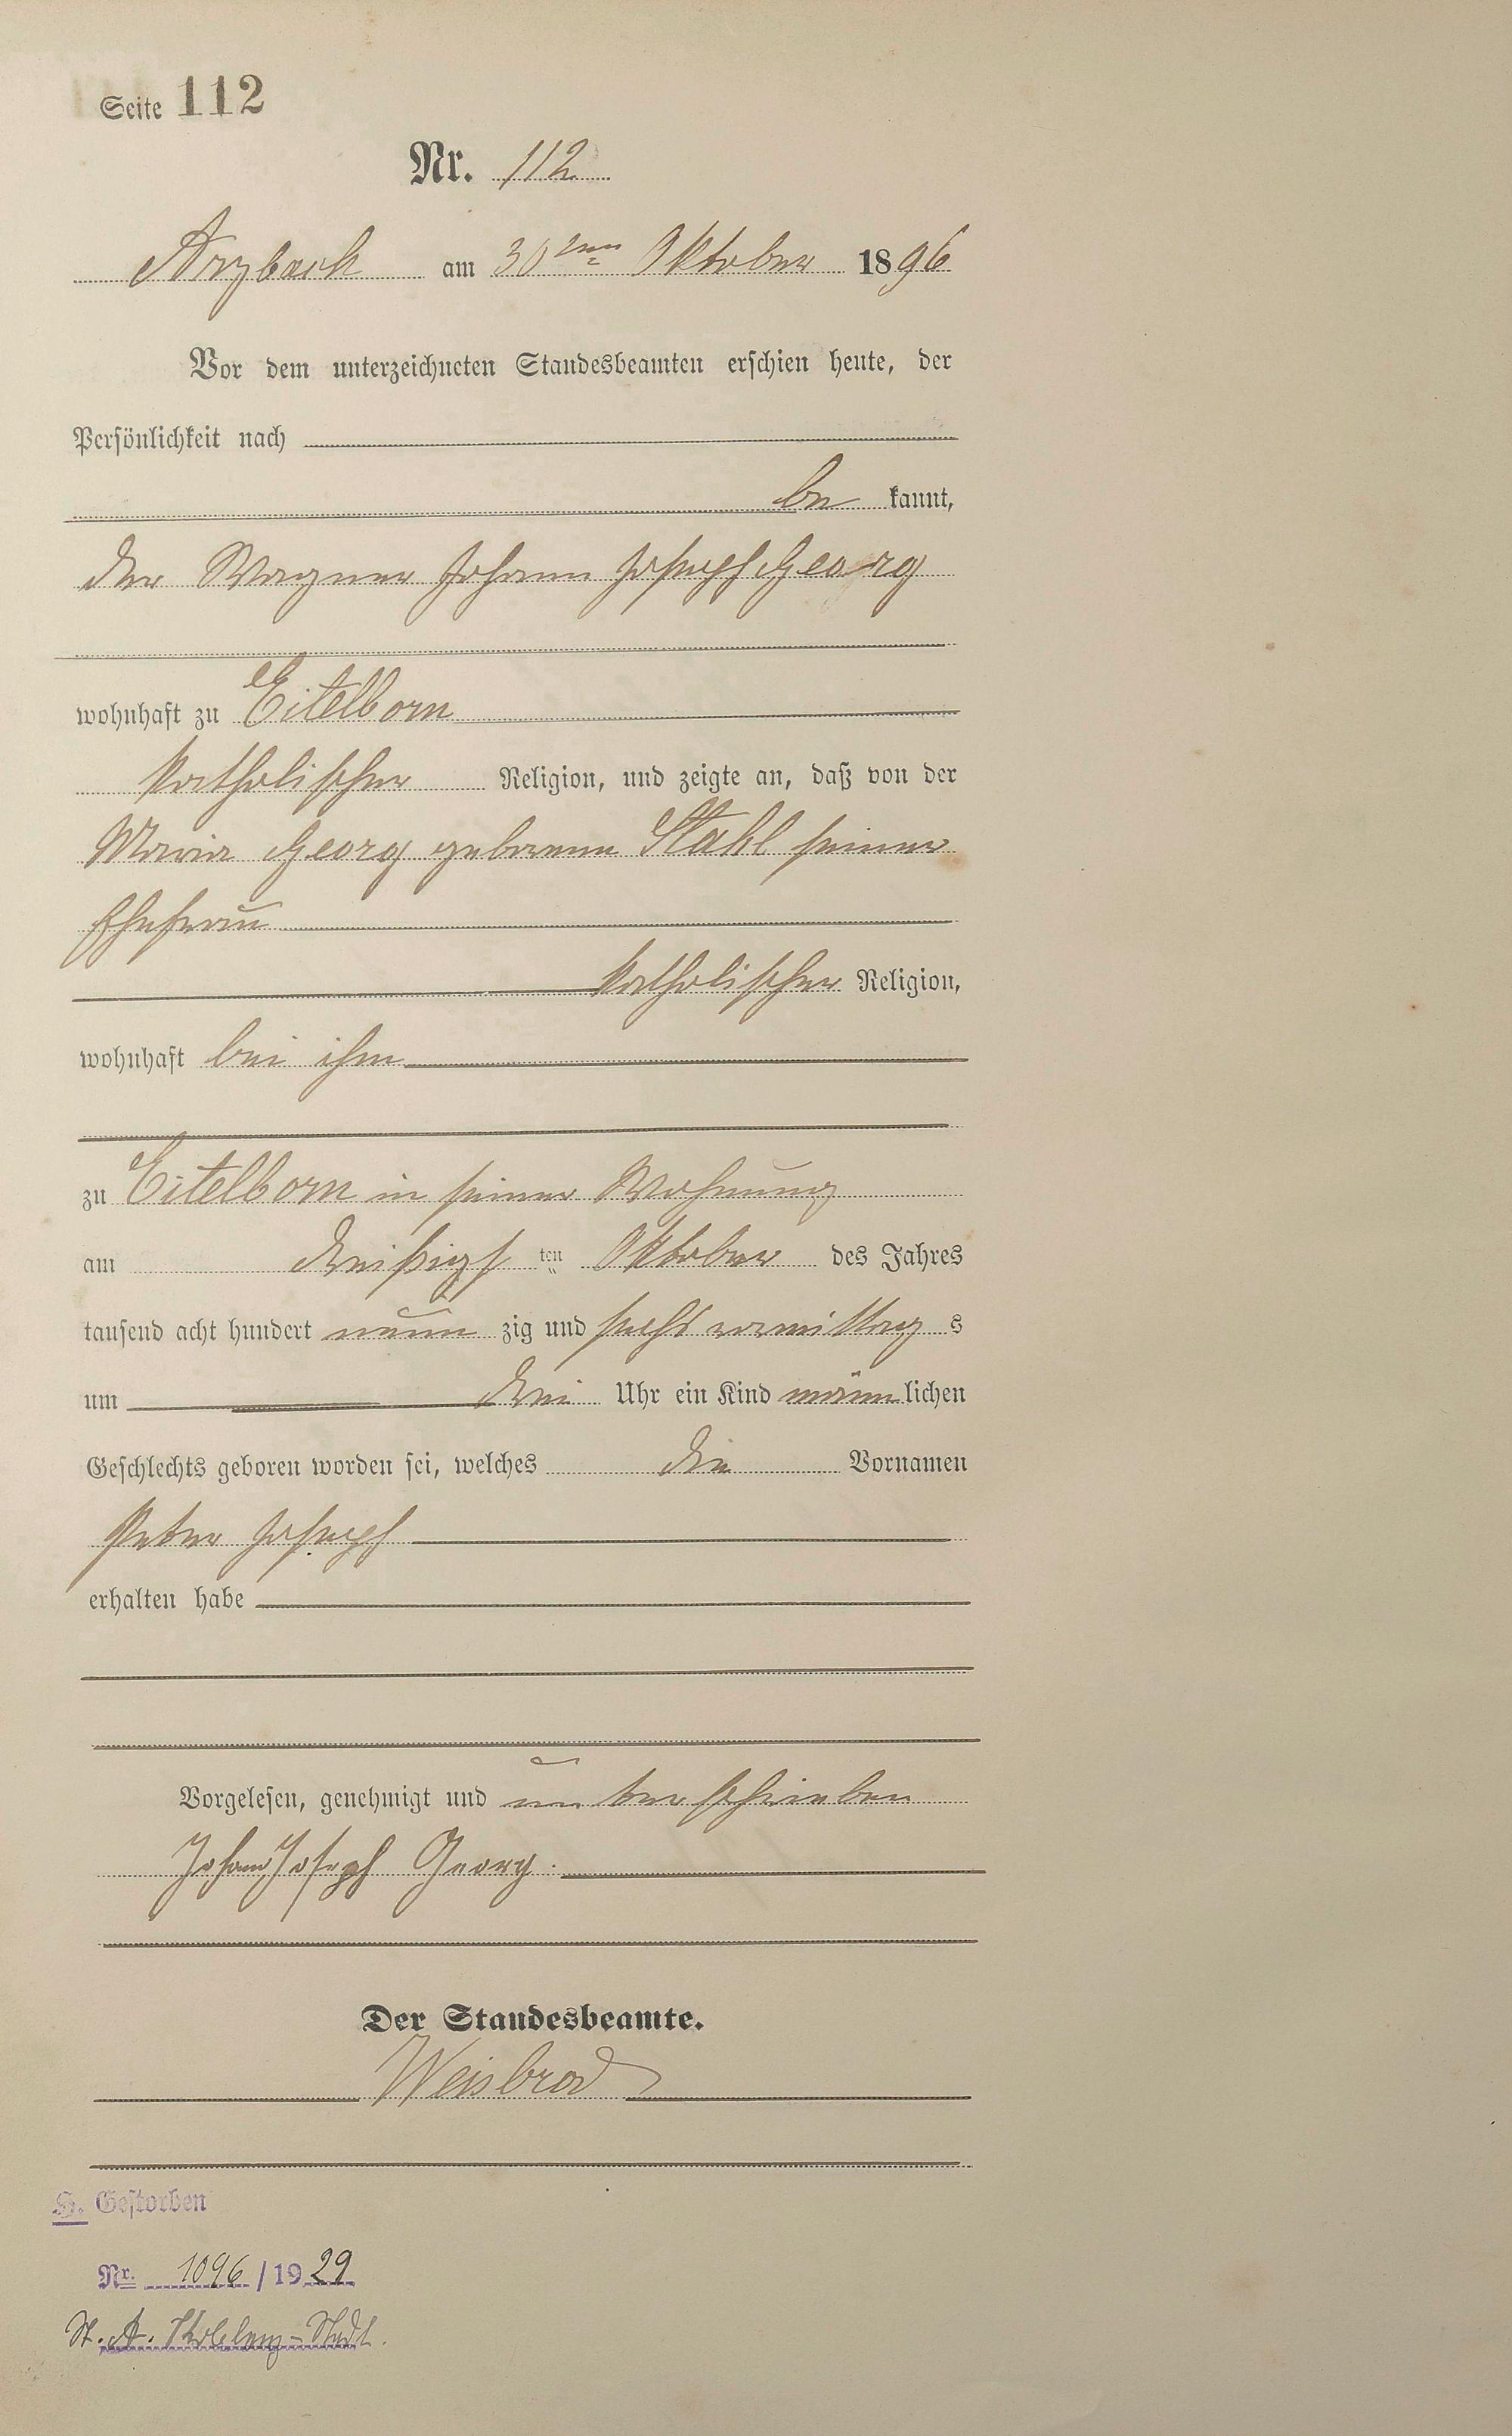 Seite 112
Nr. 112
Arzbach am 30ten Oktober 1896
Vor dem unterzeichneten Standesbeamten erschien heute, der
Persönlichkeit nach
be kannt,
der Wagner Johann Joseph Georg
wohnhaft zu Eitelborn
katholischer Religion, und zeigte an, daß von der
Maria Georg geborene Stahl seiner
Ehefrau
katholischer Religion,
wohnhaft bei ihm
zu Eitelborn in seiner Wohnung
am dreißigsten Oktober des Jahres
tausend acht hundert neun zig und sechs vormittag s
um drei Uhr ein Kind männlichen
Geschlechts geboren worden sei, welches die Vornamen
Peter Joseph
erhalten habe
Vorgelesen, genehmigt und unterschrieben
Johann Joseph Georg.
Der Standesbeamte.
Weisbrod
H. Gestorben
Nr. 1096/1929
St. A. Koblenz-Stadt.